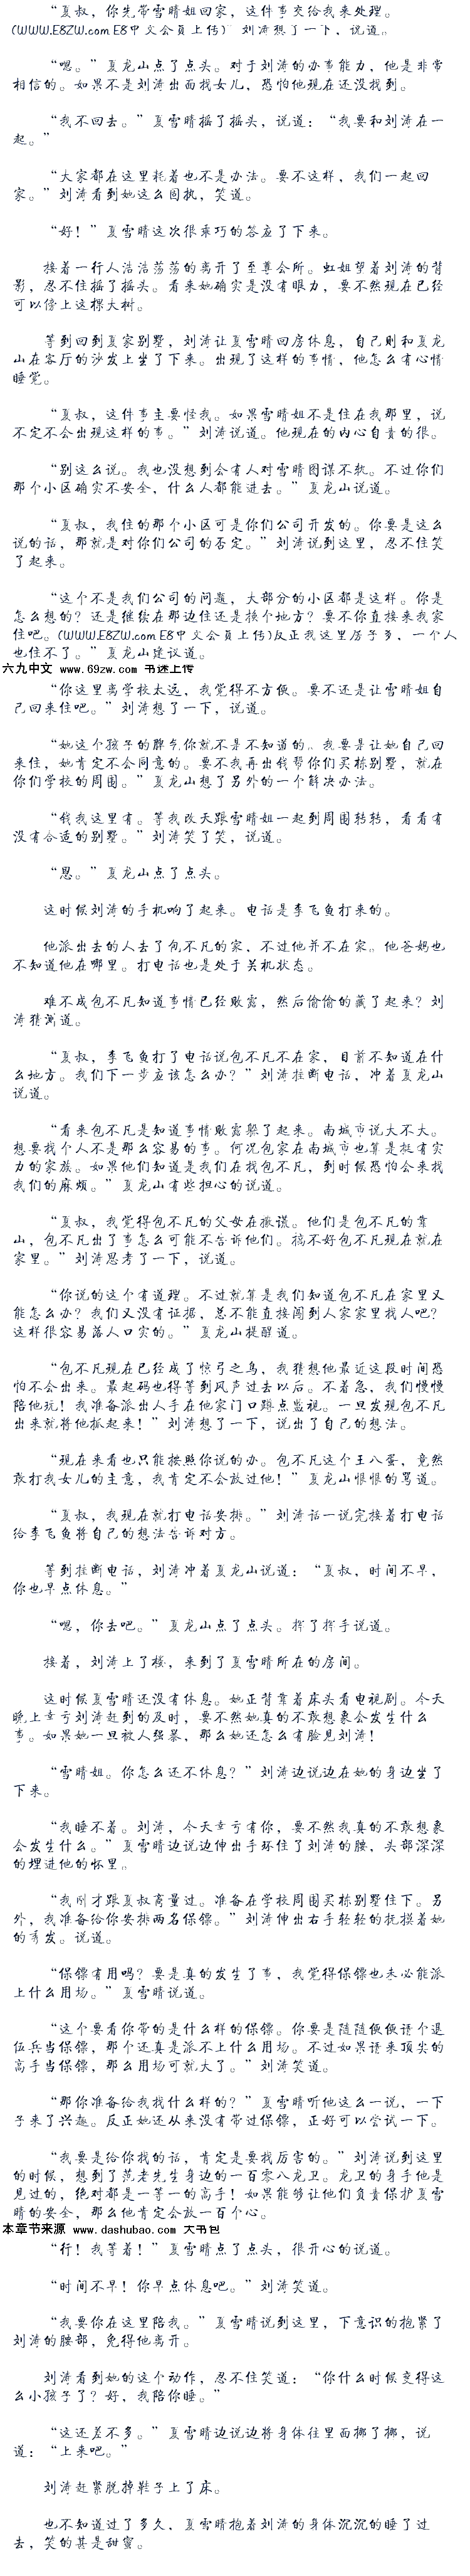 “夏叔，你先带雪晴姐回家，这件事交给我来处理。
(WWW.E8ZW.com E8中文会员上传)”刘涛想了一下，说道。
“嗯。”夏龙山点了点头。对于刘涛的办事能力，他是非常
相信的。如果不是刘涛出面找女儿，恐怕他现在还没找到。
“我不回去。”夏雪晴摇了摇头，说道：“我要和刘涛在一
起。”
“大家都在这里耗着也不是办法。要不这样，我们一起回
家。”刘涛看到她这么固执，笑道。
“好！”夏雪晴这次很乖巧的答应了下来。
接着一行人浩浩荡荡的离开了至尊会所。虹姐望着刘涛的背
影，忍不住摇了摇头。看来她确实是没有眼力，要不然现在已经
可以傍上这棵大树。
等到回到夏家别墅，刘涛让夏雪晴回房休息，自己则和夏龙
山在客厅的沙发上坐了下来。出现了这样的事情，他怎么有心情
睡觉。
“夏叔，这件事主要怪我。如果雪晴姐不是住在我那里，说
不定不会出现这样的事。”刘涛说道。他现在的内心自责的很。
“别这么说。我也没想到会有人对雪晴图谋不轨。不过你们
那个小区确实不安全，什么人都能进去。”夏龙山说道。
“夏叔，我住的那个小区可是你们公司开发的。你要是这么
说的话，那就是对你们公司的否定。”刘涛说到这里，忍不住笑
了起来。
“这个不是我们公司的问题，大部分的小区都是这样。你是
怎么想的？还是继续在那边住还是换个地方？要不你直接来我家
住吧。(WWW.E8ZW.com E8中文会员上传)反正我这里房子多，一个人
也住不了。”夏龙山建议道。
六九中文 www.69zw.com 书迷上传
“你这里离学校太远，我觉得不方便。要不还是让雪晴姐自
己回来住吧。”刘涛想了一下，说道。
“她这个孩子的脾气你就不是不知道的。我要是让她自己回
来住，她肯定不会同意的。要不我再出钱帮你们买栋别墅，就在
你们学校的周围。”夏龙山想了另外的一个解决办法。
“钱我这里有。等我改天跟雪晴姐一起到周围转转，看看有
没有合适的别墅。”刘涛笑了笑，说道。
“恩。”夏龙山点了点头。
这时候刘涛的手机响了起来。电话是李飞鱼打来的。
他派出去的人去了包不凡的家，不过他并不在家。他爸妈也
不知道他在哪里。打电话也是处于关机状态。
难不成包不凡知道事情已经败露，然后偷偷的藏了起来？刘
涛猜测道。
“夏叔，李飞鱼打了电话说包不凡不在家，目前不知道在什
么地方。我们下一步应该怎么办？”刘涛挂断电话，冲着夏龙山
说道。
“看来包不凡是知道事情败露躲了起来。南城市说大不大。
想要找个人不是那么容易的事。何况包家在南城市也算是挺有实
力的家族。如果他们知道是我们在找包不凡，到时候恐怕会来找
我们的麻烦。”夏龙山有些担心的说道。
“夏叔，我觉得包不凡的父母在撒谎。他们是包不凡的靠
山，包不凡出了事怎么可能不告诉他们。搞不好包不凡现在就在
家里。”刘涛思考了一下，说道。
“你说的这个有道理。不过就算是我们知道包不凡在家里又
能怎么办？我们又没有证据，总不能直接闯到人家家里找人吧？
这样很容易落人口实的。”夏龙山提醒道。
“包不凡现在已经成了惊弓之鸟，我猜想他最近这段时间恐
怕不会出来。最起码也得等到风声过去以后。不着急，我们慢慢
陪他玩！我准备派出人手在他家门口蹲点监视。一旦发现包不凡
出来就将他抓起来！”刘涛想了一下，说出了自己的想法。
“现在来看也只能按照你说的办。包不凡这个王八蛋，竟然
敢打我女儿的主意，我肯定不会放过他！”夏龙山恨恨的骂道。
“夏叔，我现在就打电话安排。”刘涛话一说完接着打电话
给李飞鱼将自己的想法告诉对方。
等到挂断电话，刘涛冲着夏龙山说道：“夏叔，时间不早，
你也早点休息。”
“嗯，你去吧。”夏龙山点了点头。挥了挥手说道。
接着，刘涛上了楼，来到了夏雪晴所在的房间。
这时候夏雪晴还没有休息。她正背靠着床头看电视剧。今天
晚上幸亏刘涛赶到的及时，要不然她真的不敢想象会发生什么
事。如果她一旦被人强暴，那么她还怎么有脸见刘涛！
“雪晴姐。你怎么还不休息？”刘涛边说边在她的身边坐了
下来。
“我睡不着。刘涛，今天幸亏有你，要不然我真的不敢想象
会发生什么。”夏雪晴边说边伸出手环住了刘涛的腰，头部深深
的埋进他的怀里。
“我刚才跟夏叔商量过。准备在学校周围买栋别墅住下。另
外，我准备给你安排两名保镖。”刘涛伸出右手轻轻的抚摸着她
的秀发。说道。
“保镖有用吗？要是真的发生了事，我觉得保镖也未必能派
上什么用场。”夏雪晴说道。
“这个要看你带的是什么样的保镖。你要是随随便便请个退
伍兵当保镖，那个还真是派不上什么用场。不过如果请来顶尖的
高手当保镖，那么用场可就大了。”刘涛笑道。
“那你准备给我找什么样的？”夏雪晴听他这么一说，一下
子来了兴趣。反正她还从来没有带过保镖，正好可以尝试一下。
“我要是给你找的话，肯定是要找厉害的。”刘涛说到这里
的时候，想到了范老先生身边的一百零八龙卫。龙卫的身手他是
见过的，绝对都是一等一的高手！如果能够让他们负责保护夏雪
晴的安全，那么他肯定会放一百个心。
本章节来源 www.dashubao.com 大书包
“行！我等着！”夏雪晴点了点头，很开心的说道。
“时间不早！你早点休息吧。”刘涛笑道。
“我要你在这里陪我。”夏雪晴说到这里，下意识的抱紧了
刘涛的腰部，免得他离开。
刘涛看到她的这个动作，忍不住笑道：“你什么时候变得这
么小孩子了？好，我陪你睡。”
“这还差不多。”夏雪晴边说边将身体往里面挪了挪，说
道：“上来吧。”
刘涛赶紧脱掉鞋子上了床。
也不知道过了多久，夏雪晴抱着刘涛的身体沉沉的睡了过
去，笑的甚是甜蜜。